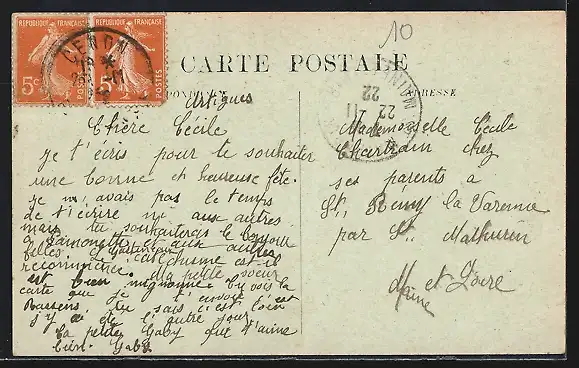 10
REPUBLIQUE FRANÇAISE
REPUBLIQUE FRANÇAISE
5c POSTES
5c POSTES
CENON
CARTE POSTALE
ADRESSE
Artigues
Chère Cécile
je t'écris pour te souhaiter
une bonne et heureuse fête.
je n'avais pas le temps
de t'écrire ni aux autres
mais tu souhaiteras le bonjour
à Ramonette et aux autres
filles. Le catéchisme est il
recommencé. Ma petite soeur
est bien mignonne. Tu vois la
carte que je t'envoie c'est
Bassens. Tu sais c'est loin
j'y ai de l'autre jour.
Ta petite Gaby qui t'aime
bien. Gaby
Mademoiselle Cécile
Chartrain chez
ses parents à
St. Rémy la Varenne
par St. Mathurin
Maine et Loire
22-11
22